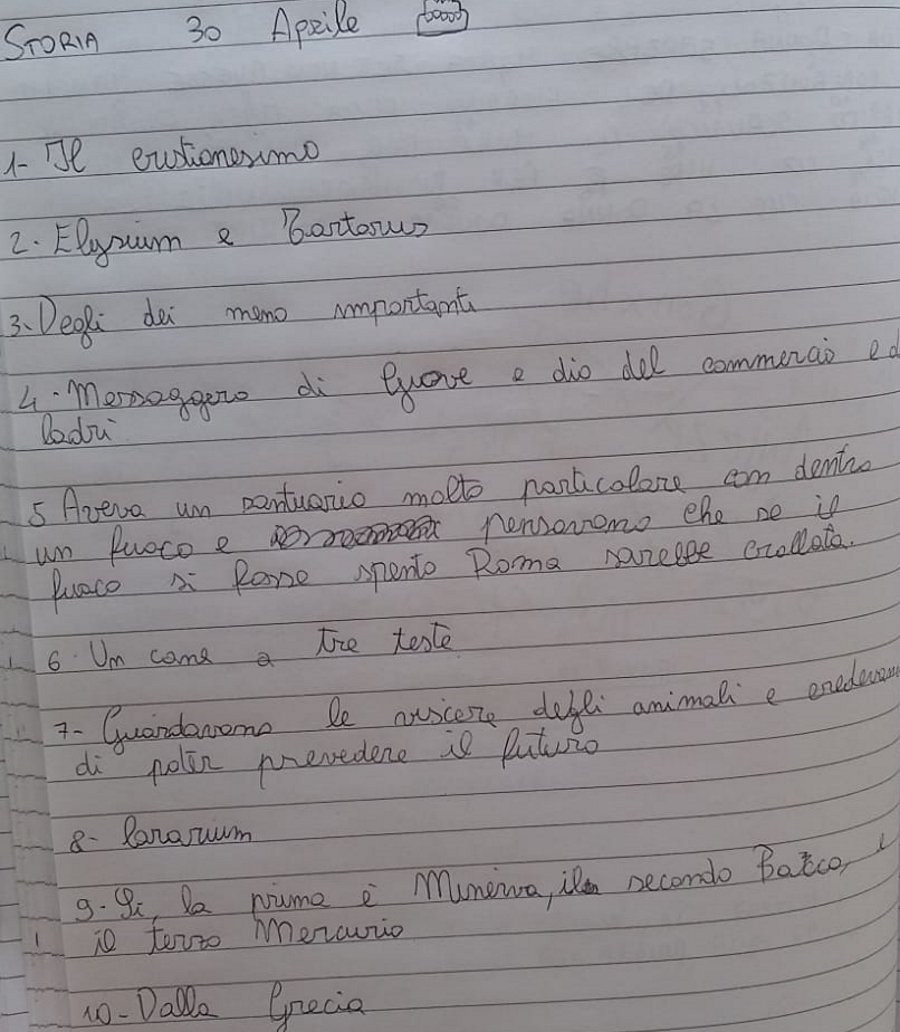 STORIA 30 Aprile
1- Il cristianesimo
2. Elysium e Tartarus
3. Degli dei meno importanti
4. Messaggero di Giove e dio del commercio e d
ladri
5 Aveva un santuario molto particolare com dentro
un fuoco e pensavamo che se il
fuoco si fosse spento Roma sarebbe crollata.
6. Un cane a tre teste
7- Guardavamo le viscere degli animali e credevam
di poter prevedere il futuro
8- Lararium
9- Si, la prima è Minerva, il secondo Bacco,
il terzo Mercurio
10- Dalla Grecia